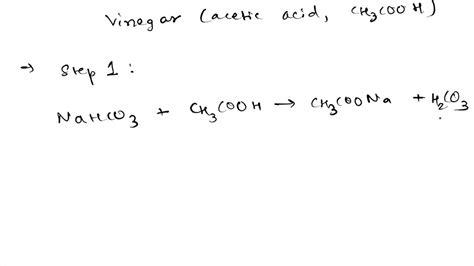 Vinegar (acetic acid, CH₃COOH)
→ Step 1:
NaHCO₃ + CH₃COOH → CH₃COONa + H₂CO₃